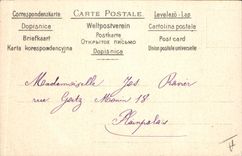 Correspondenzkarte
CARTE POSTALE
Levelező-Lap
Dopisnice
Weltpostverein
Cartolina postale
Briefkarte
Postkarte
Post card
Karta korespondencyjna
Открытое письмо
Union postale universelle
Dopisnica
Mademoiselle Jos
rue 18
Plainpalais